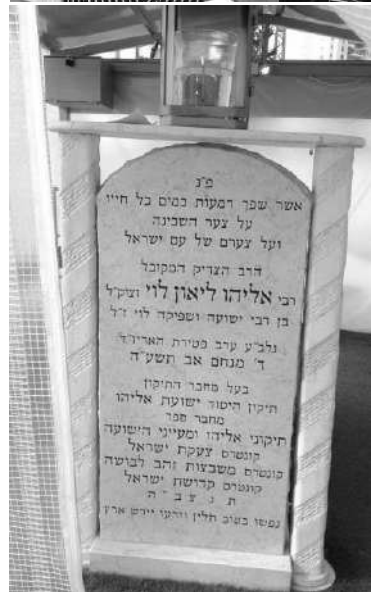 פ"נ
אשר שפך דמעות כמים כל חייו
על צער השכינה
ועל צערם של עם ישראל
הרב הצדיק המקובל
רבי אליהו ליאון לוי זציק"ל
בן רבי ישועה ושפיקה לוי ז"ל
נלב"ע ערב פטירת האריז"ל
ד' מנחם אב תשע"ה
בעל מחבר התיקון
תיקון היסוד ישועת אליהו
מחבר ספר
תיקוני אליהו ומעייני הישועה
קונטרס צעקת ישראל
קונטרס משבצות זהב לבושה
קונטרס קדושת ישראל
ת נ צ ב " ה
נפשו בטוב תלין וזרעו יירש ארץ